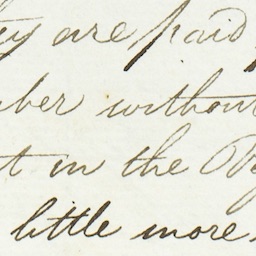 they are paid
ber without
t in the
little more